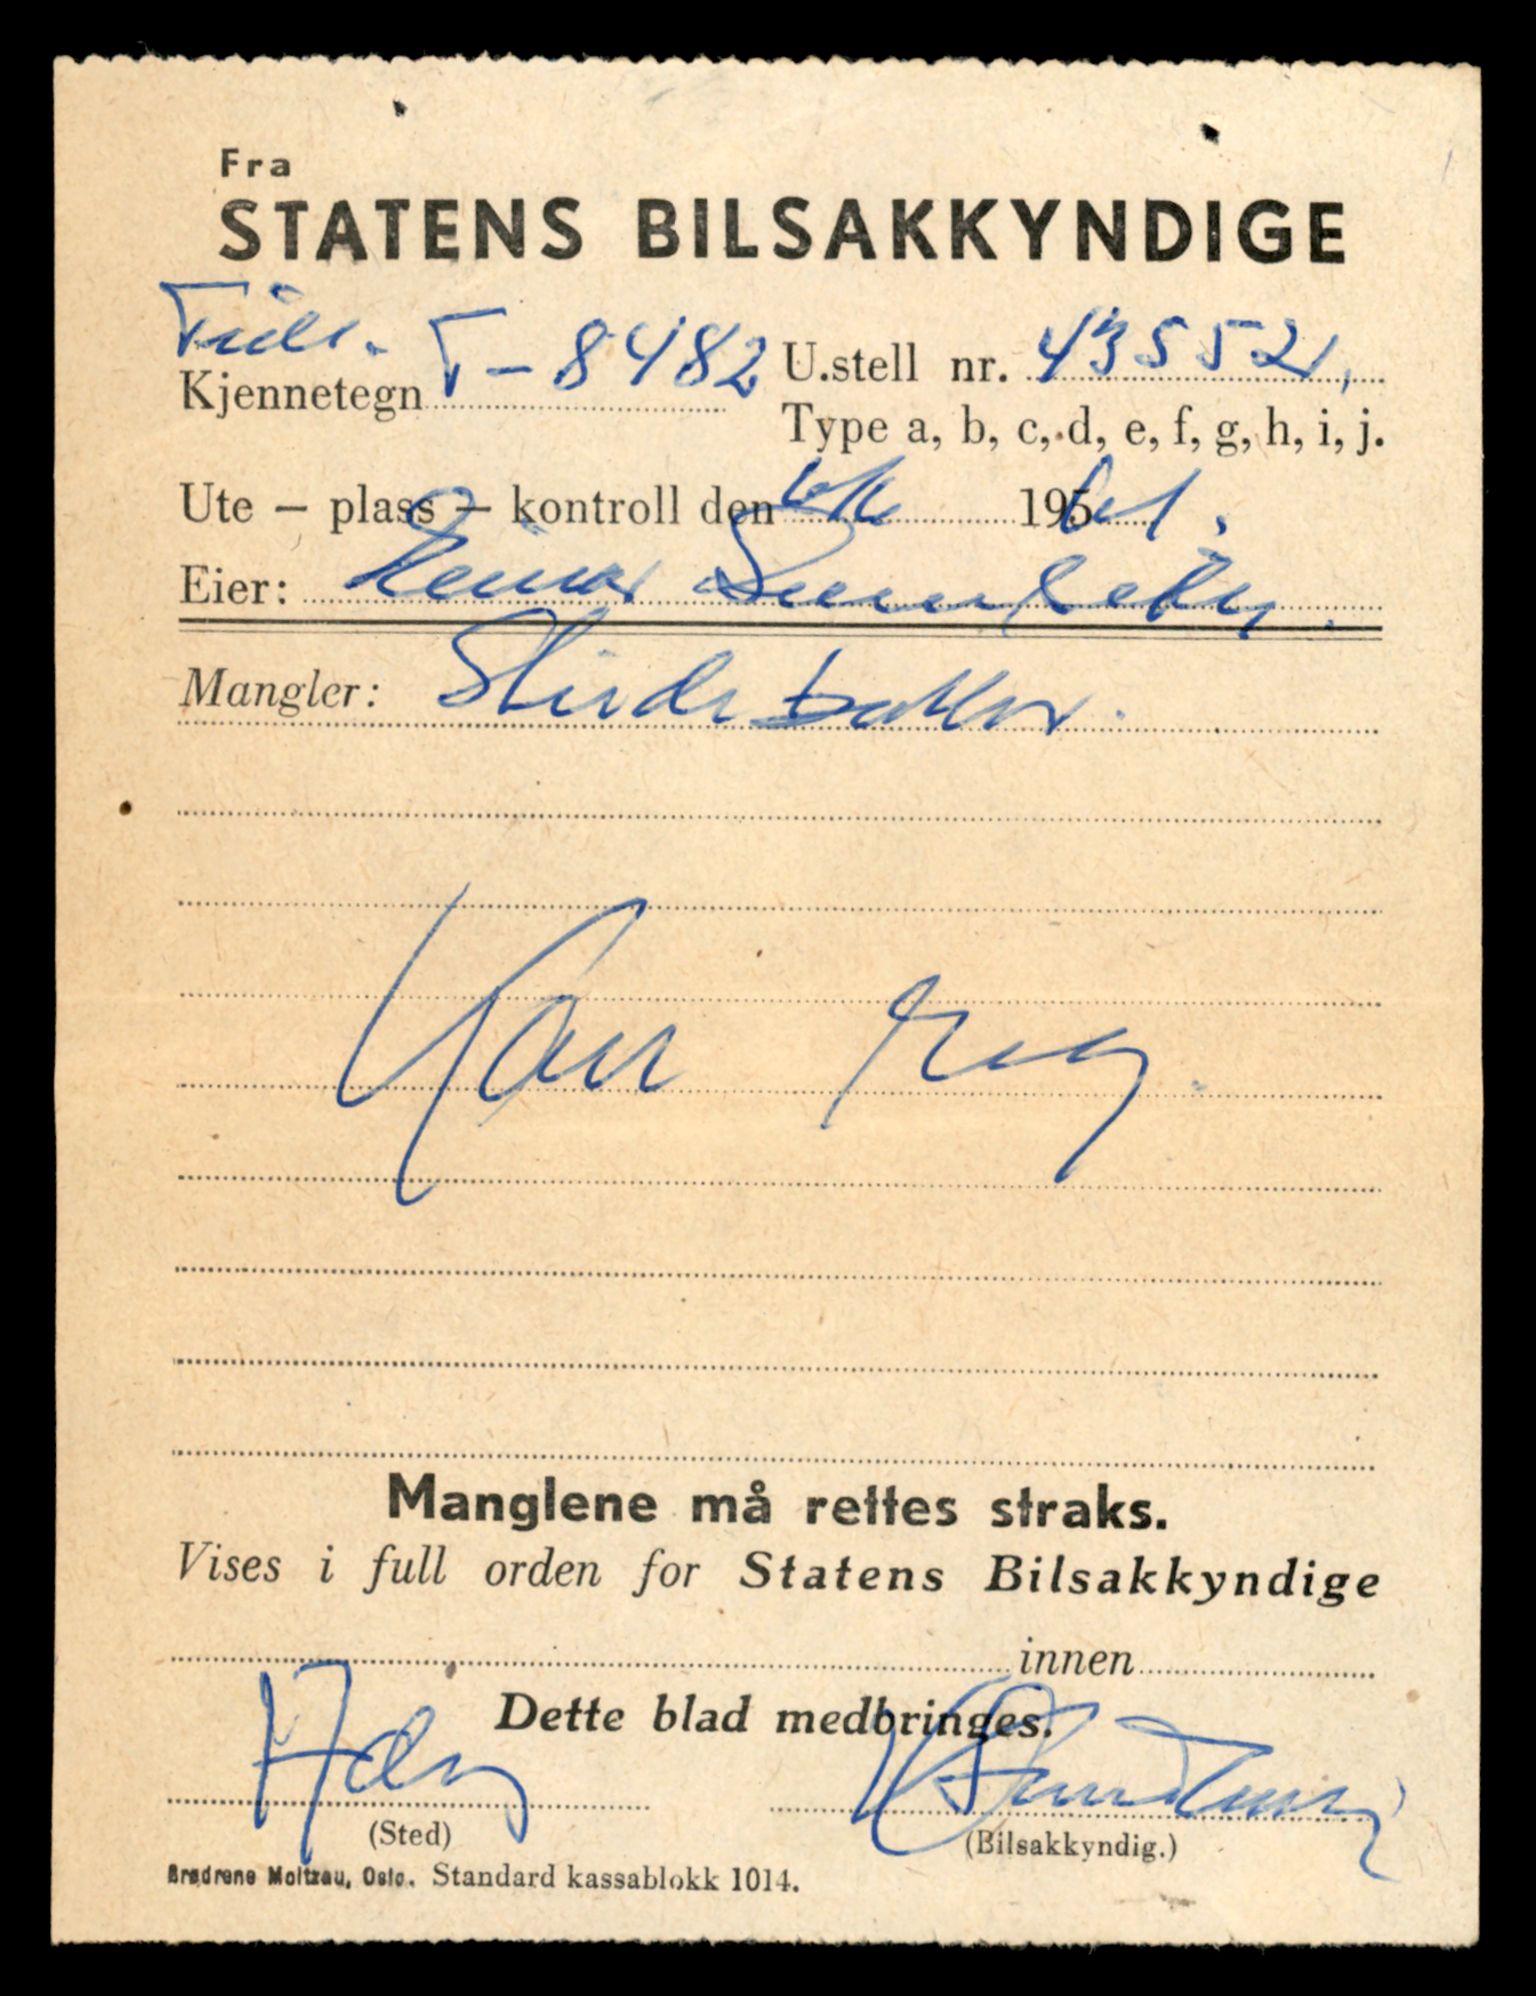 Fra
STATENS BILSAKKYNDIGE
Tidl.
Kjennetegn T-8482 U.stell nr. 43552
Type a, b, c, d, e, f, g, h, i, j.
Ute – plass – kontroll den 195
Eier: Einar
Mangler: Studebaker.
Kan reg.
Manglene må rettes straks.
Vises i full orden for Statens Bilsakkyndige
innen
Dette blad medbringes.
(Sted) (Bilsakkyndig.)
Brødrene Moltzau, Oslo. Standard kassablokk 1014.